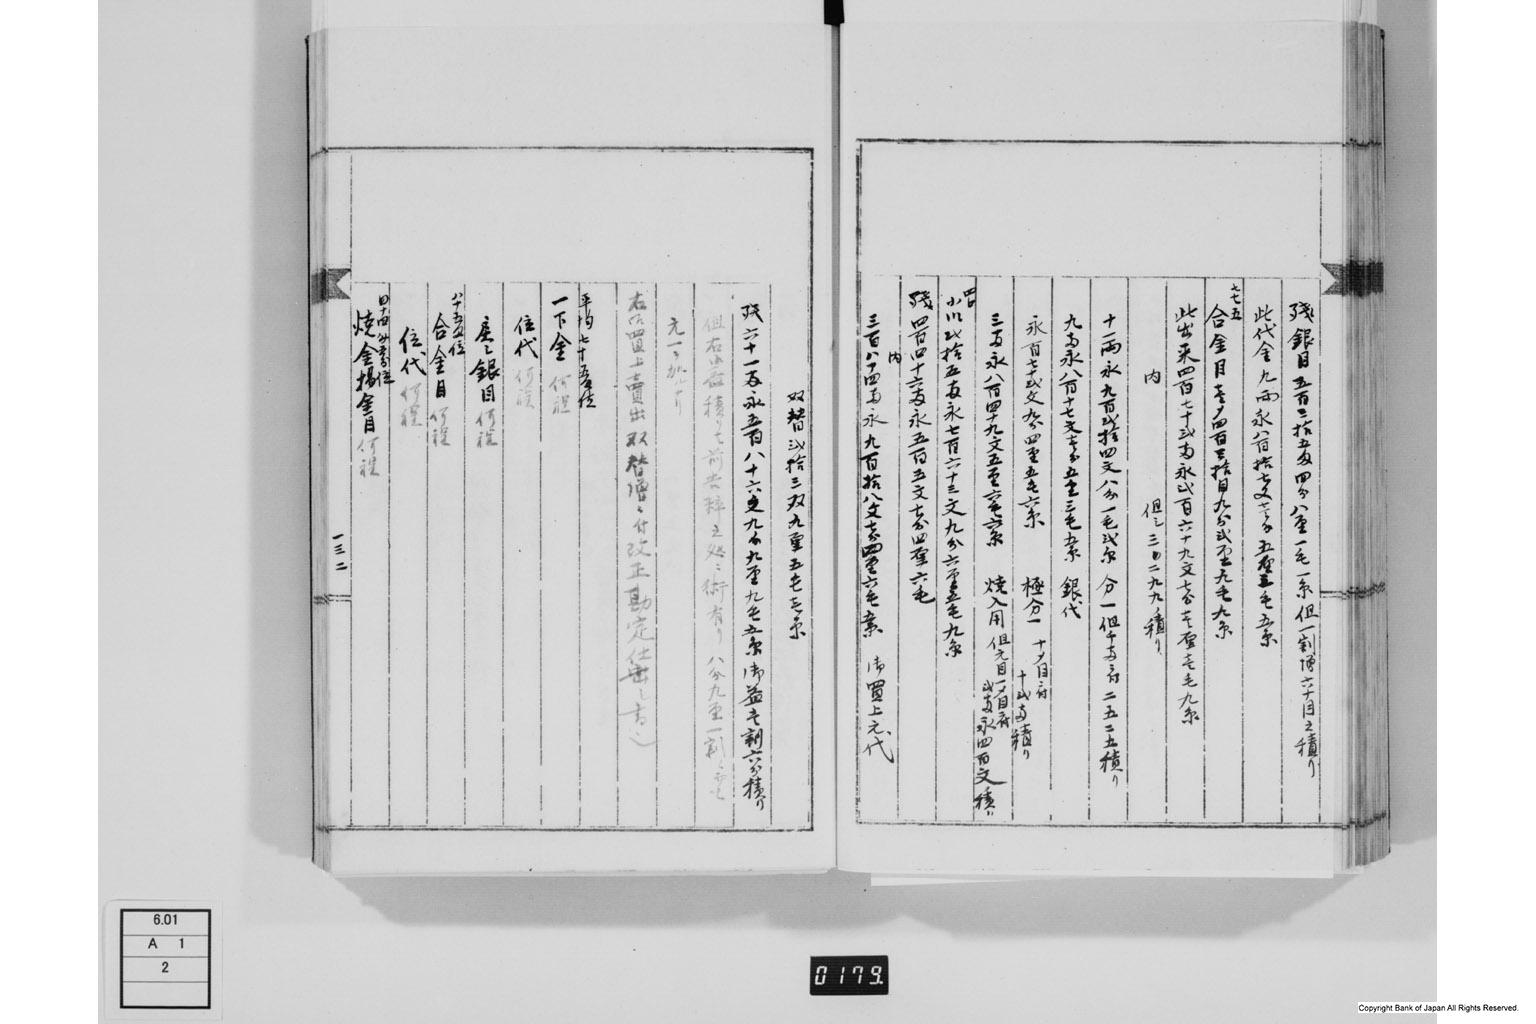 残銀目五百三拾五匁四分八厘一毛一糸 但一割増六十目之積り
此代金九両永八百拾七文七分五厘五毛五糸
七七五
合金目壱〆四百三拾目九分弐厘九毛九糸
此出来四百七十弐両永弐百六十九文七分壱厘壱毛九糸
内 但シ三〇二九九ノ積り
十一両永九百弐拾四文八分一毛弐糸 分一但千両ニ付二五二五積り
九両永八百十七文七分五厘三毛五糸 銀代
永百七十弐文九分四厘五毛六糸 極分一 十〆目ニ付十弐両積り
三両永八百四十九文五厘六毛六糸 焼入用 但元目一〆目ニ付弐両永四百文積り
〆弐拾五両永七百六十三文九分六厘五毛九糸
残四百四十六両永五百五文七分四厘六毛
内
三百八十四両永九百拾八文七分四厘六毛 御買上元代
双替弐拾三双九厘五毛七糸
残六十一両永五百八十六文九分九厘九毛五糸 御益壱割六分積り
但右御益積りも前者
元一ヲ加ルナリ
右御買上売出双替増ニ付改正勘定仕出シ書
平均七十五匁位
一下金 何程
位代 何程
戻シ銀目 何程
八十五匁位
合金目 何程
位代 何程
四十四匁
焼金揚金目 何程
一三二
6.01
A 1
2
0179.
Copyright Bank of Japan All Rights Reserved.